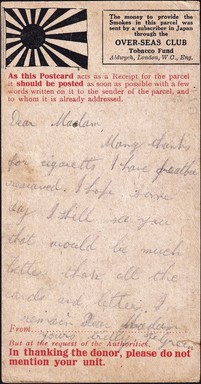 The money to provide the
Smokes in this parcel was
sent by a subscriber in Japan
through the
OVER-SEAS CLUB
Tobacco Fund
Aldwych, London, W.C., Eng.
As this Postcard acts as a Receipt for the parcel
it should be posted as soon as possible with a few
words written on it to the sender of the parcel, and
to whom it is already addressed.
Dear Madam
Many thanks
for cigaretts I have
received. I hope some
day I shall see you
that would be much
better than all the
cards and letters I
remain Dear Madam
From
Yours
But at the request of the Authorities.
In thanking the donor, please do not
mention your unit.